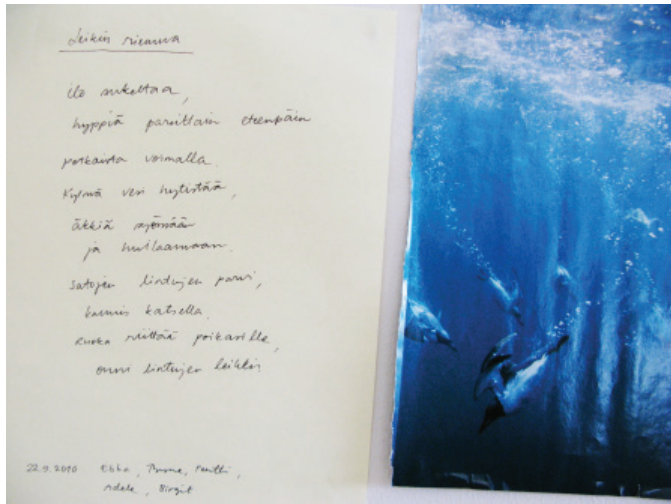 Leikin riemua
ilo sukeltaa,
hyppiä pareittain eteenpäin
potkaista voimalla.
Kylmä vesi hytistää,
äkkiä syömään
ja huilaamaan.
Satojen lintujen parvi,
kaunis katsella.
Ruoka riittää poikasille,
onni lintujen leikkiä
22.9.2010 Ebba, Pentti,
Adele, Birgit